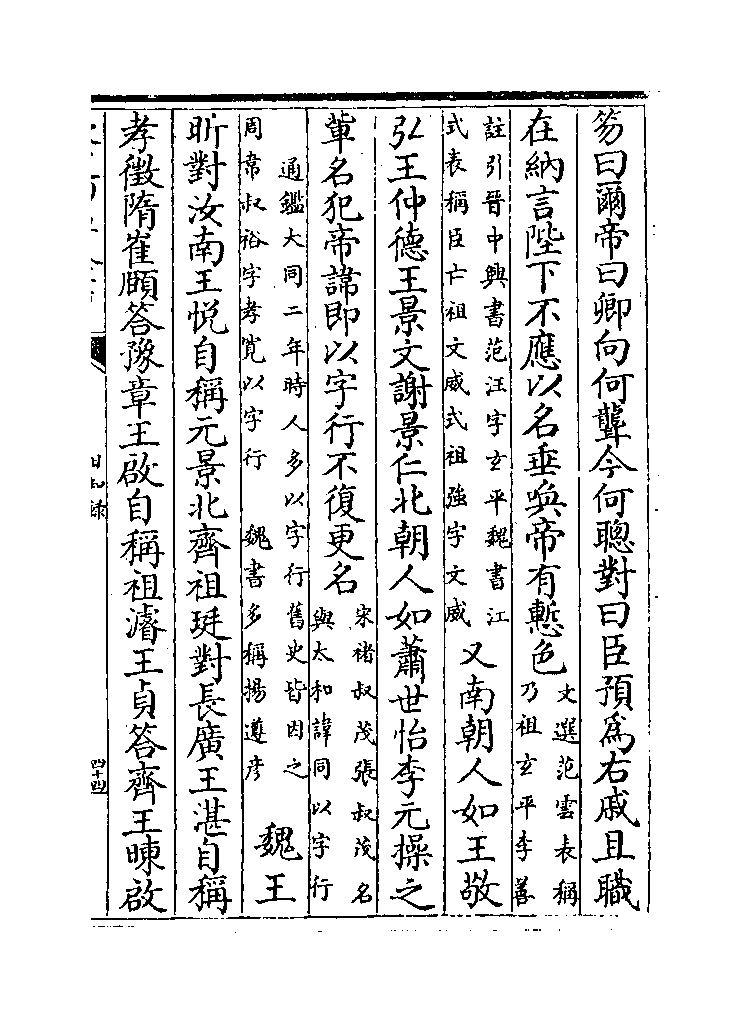 笏曰爾帝曰卿向何聾今何聰對曰臣預為右戚且職
在納言陛下不應以名垂喚帝有慙色文選范雲表稱乃祖玄平李善
註引晉中興書范汪字玄平魏書江式表稱臣亡祖文威式祖強字文威又南朝人如王敬
弘王仲德王景文謝景仁北朝人如蕭世怡李元操之
軰名犯帝諱即以字行不復更名宋禇叔茂張叔茂名與太和諱同以字行
通鑑大同二年時人多以字行舊史皆因之周韋叔裕字孝寛以字行 魏書多稱揚遵彦魏王
昕對汝南王悦自稱元景北齊祖珽對長廣王湛自稱
孝徵隋崔頤答豫章王啟自稱祖濬王貞答齊王暕啟
日知錄
四十四